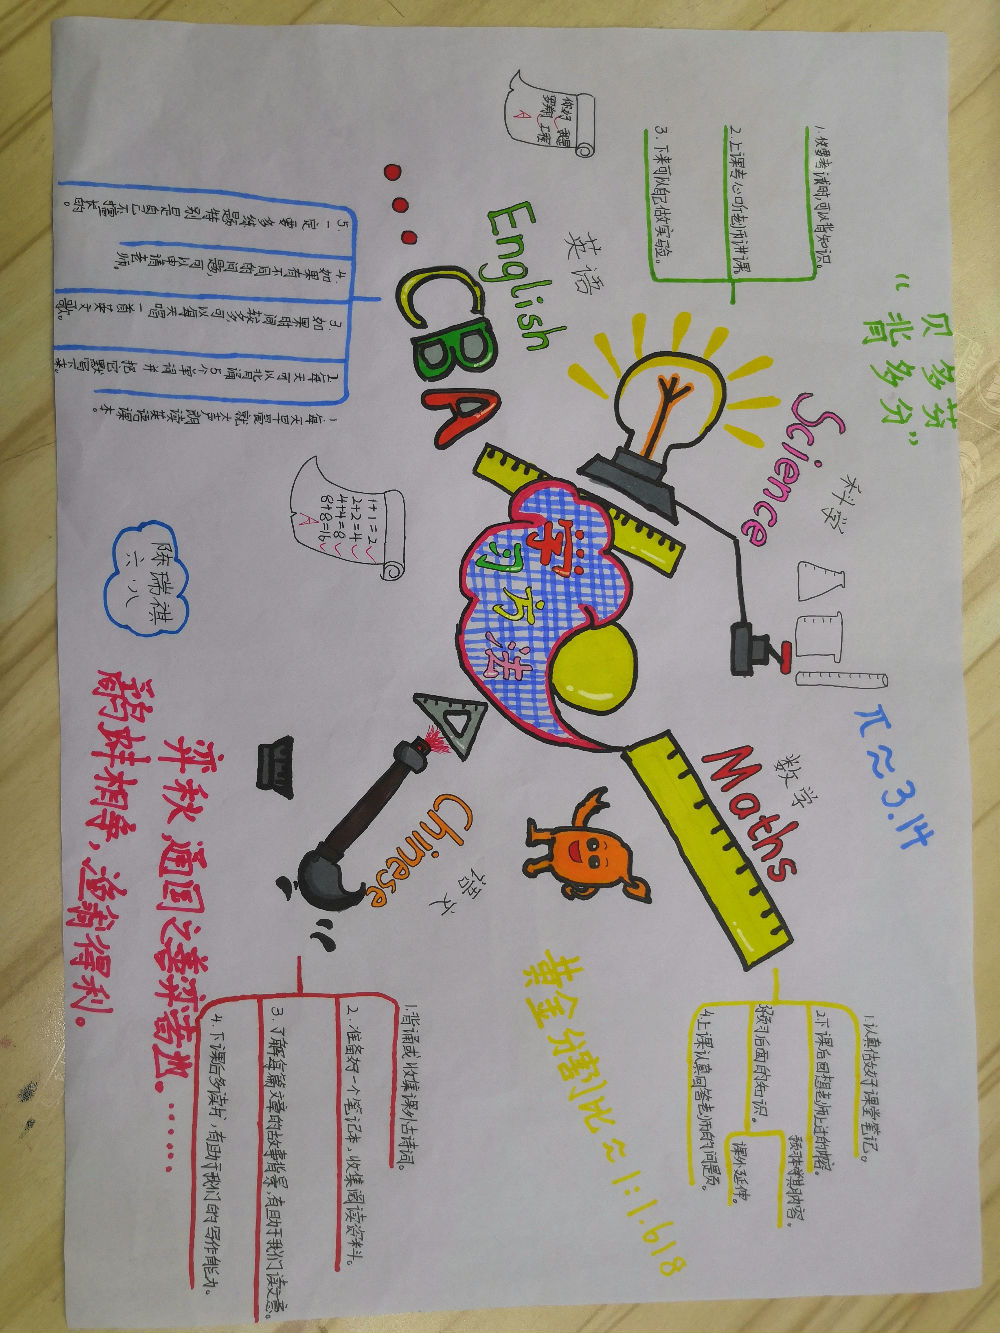 学习方法
Science
科学
1.快要考试时,可以背知识。
2.上课专心听老师讲课
3.下来可以自己做实验。
“贝多芬
背多分”
English
英语
CBA
1.每天早晨就大声朗读英语课本。
2.每天可以背诵5个单词并把它默写下来。
3.如果时间较多可以每天唱一首英文歌。
4.如果有不同的问题可以申请老师。
5.一定需多练题特别是自己不擅长的。
你好
A
1+1=2
2+2=4
4+4=8
8+8=16
A
陈瑞祺
六.八
Maths
数学
π≈3.14
1.认真估好课堂笔记。
2.下课后回想老师上过的内容。
3.预习后面的知识。
课外延伸。
4.上课认真回答老师的问题。
黄金分割比≈1:1.618
Chinese
语文
1.背诵或收集课外古诗词。
2.准备好一个笔记本,收集阅读资料。
3.了解每篇文章的故事背景,有助于我们读文意。
4.下课后多读书,有助于我们的写作能力。
弈秋,通国之善弈者也.……
鹬蚌相争,渔翁得利。